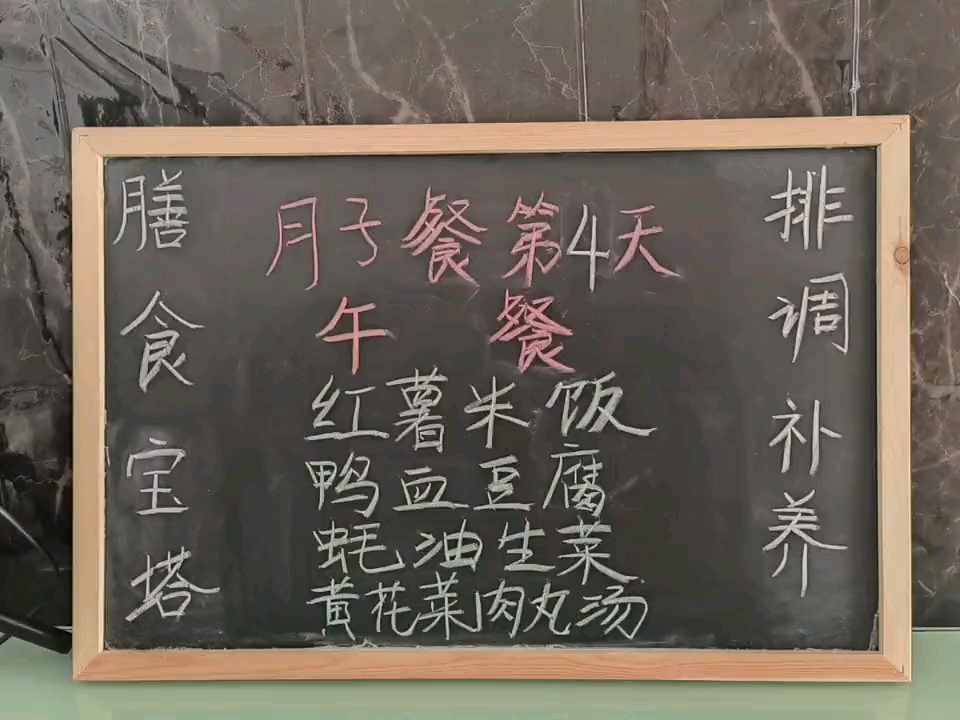 膳食宝塔
月子餐第4天
午餐
红薯米饭
鸭血豆腐
蚝油生菜
黄花菜肉丸汤
排调补养